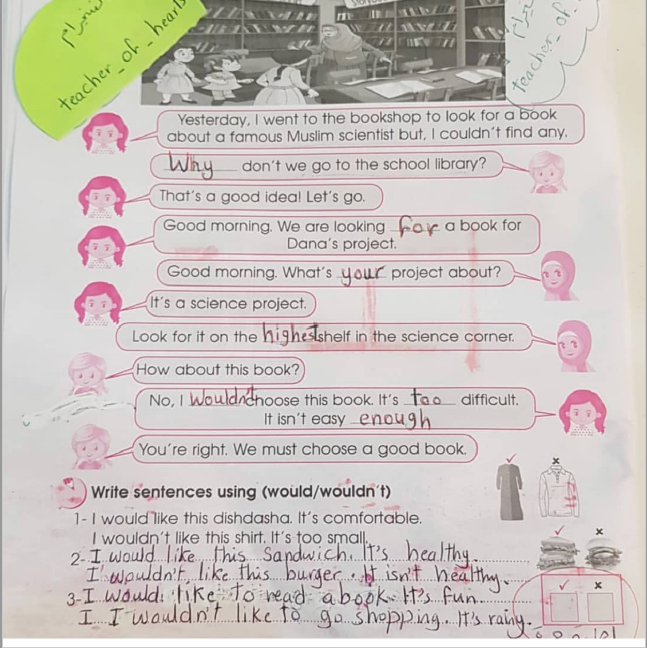 teacher_of_hearts
teacher_of_
Yesterday, I went to the bookshop to look for a book
about a famous Muslim scientist but, I couldn't find any.
Why don't we go to the school library?
That's a good idea! Let's go.
Good morning. We are looking for a book for
Dana's project.
Good morning. What's your project about?
It's a science project.
Look for it on the highest shelf in the science corner.
How about this book?
No, I wouldn't choose this book. It's too difficult.
It isn't easy enough
You're right. We must choose a good book.
Write sentences using (would/wouldn't)
1- I would like this dishdasha. It's comfortable.
I wouldn't like this shirt. It's too small.
2- I would like this sandwich. It's healthy.
I wouldn't, like this burger. It isn't healthy.
3- I would like to read a book. It's fun.
I I wouldn't like to go shopping. It's rainy.